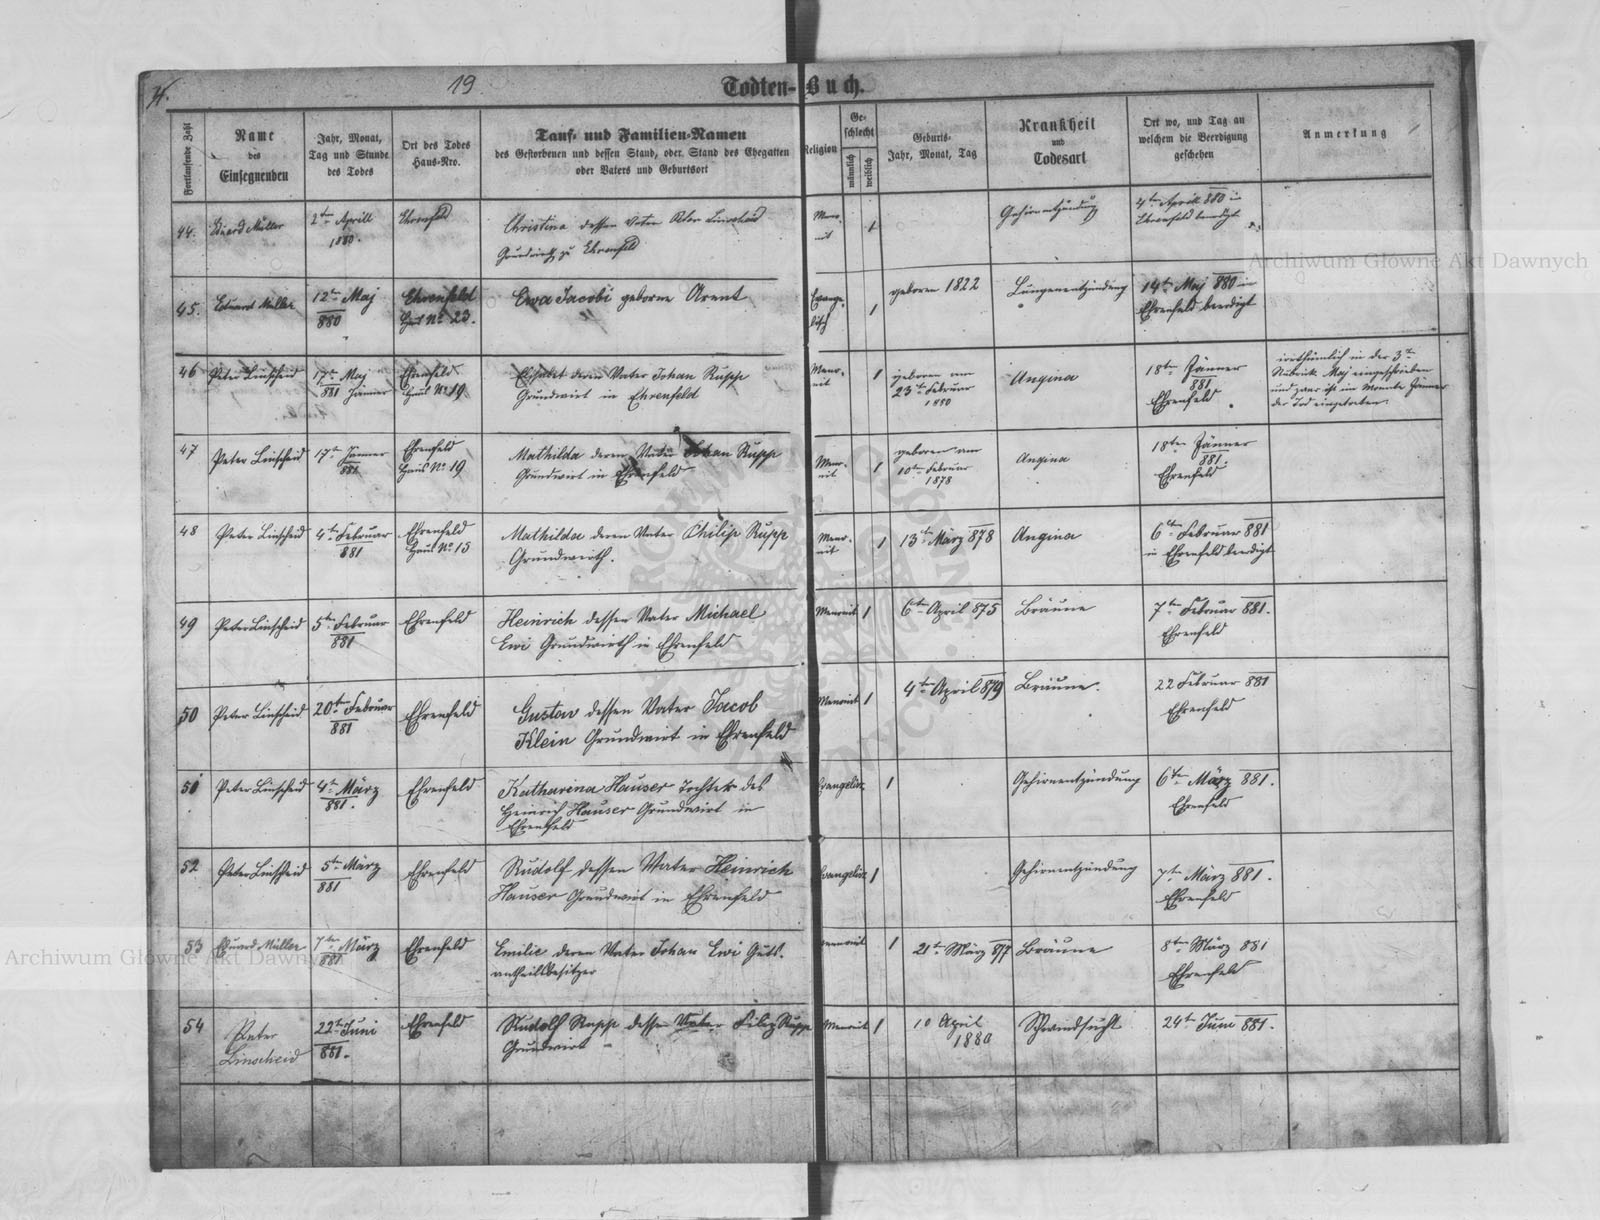 19
Todten-Buch.
Fortlaufende Zahl
Name
des
Einsegnenden
Jahr, Monat,
Tag und Stunde
des Todes
Ort des Todes
Haus-Nro.
Tauf- und Familien-Namen
des Gestorbenen und dessen Stand, oder Stand des Ehegatten
oder Vaters und Geburtsort
Religion
Ge-
schlecht
männlich
weiblich
Geburts-
Jahr, Monat, Tag
Krankheit
und
Todesart
Ort wo, und Tag an
welchem die Beerdigung
geschehen
Anmerkung
44. Eduard Müller
2ten Aprill
1880.
Ehrenfeld
Christina dessen Vater Peter Linscheid
Grundwirth zu Ehrenfeld
Meno-
nit
1
Gehirnentzündung
4ten Aprill 880 in
Ehrenfeld beerdigt
45. Eduard Müller
12ten Maj
880
Ehrenfeld
Haus No 23.
Ewa Jacobi geborne Arent
Evange-
lisch
1
geboren 1822
Lungenentzündung
14ten Maj 880 in
Ehrenfeld beerdigt
46 Peter Linscheid
17ten Maj
881 Jänner
Ehrenfeld
Haus No 19
Elisabet deren Vater Johan Rupp
Grundwirt in Ehrenfeld
Meno-
nit
1
geboren am
23ten Februar
1880
Angina
18ten Jänner
881
Ehrenfeld.
irrthümlich in der 3ten
Rubrick Maj eingeschrieben
und zwar ist im Monate Jänner
der Tod eingetreten.
47 Peter Linscheid
17ten Jänner
881
Ehrenfeld
Haus No 19
Mathilda deren Vater Johan Rupp
Grundwirt in Ehrenfeld
Meno-
nit
1
geboren am
10ten Februar
1878
Angina
18ten Jänner
881
Ehrenfeld
48 Peter Linscheid
4ten Februar
881
Ehrenfeld
Haus No 15
Mathilda deren Vater Philip Rupp
Grundwirth.
Meno-
nit
1
13ten März 878
Angina
6ten Februar 881
in Ehrenfeld beerdigt
49 Peter Linscheid
5ten Februar
881
Ehrenfeld
Heinrich dessen Vater Michael
Ewi Grundwirth in Ehrenfeld
Menonit 1
6ten April 875
Bräune
7ten Februar 881.
Ehrenfeld
50 Peter Linscheid
20ten Februar
881
Ehrenfeld
Gustav dessen Vater Jacob
Klein Grundwirt in Ehrenfeld
Menonit 1
4ten April 879
Bräune.
22 Februar 881
Ehrenfeld
51 Peter Linscheid
4ten März
881.
Ehrenfeld
Katharina Hauser Tochter des
Heinrich Hauser Grundwirt in
Ehrenfeld
Evangelisch
1
Gehirnentzündung
6ten März 881.
Ehrenfeld
52 Peter Linscheid
5ten März
881
Ehrenfeld
Rudolf dessen Vater Heinrich
Hauser Grundwirt in Ehrenfeld
Evangelisch 1
Gehirnentzündung
7ten März 881.
Ehrenfeld
53 Eduard Müller
7ten März
881
Ehrenfeld
Emilie deren Vater Johan Ewi Guts-
antheilsbesitzer
Menonit
1
21ten März 877
Bräune
8ten März 881
Ehrenfeld
54 Peter
Linscheid
22ten Juni
881.
Ehrenfeld
Rudolf Rupp dessen Vater Filip Rupp
Grundwirt
Menonit 1
10 April
1880
Schwindsucht
24ten Juni 881.
Archiwum Główne Akt Dawnych
Archiwum Główne Akt Dawnych